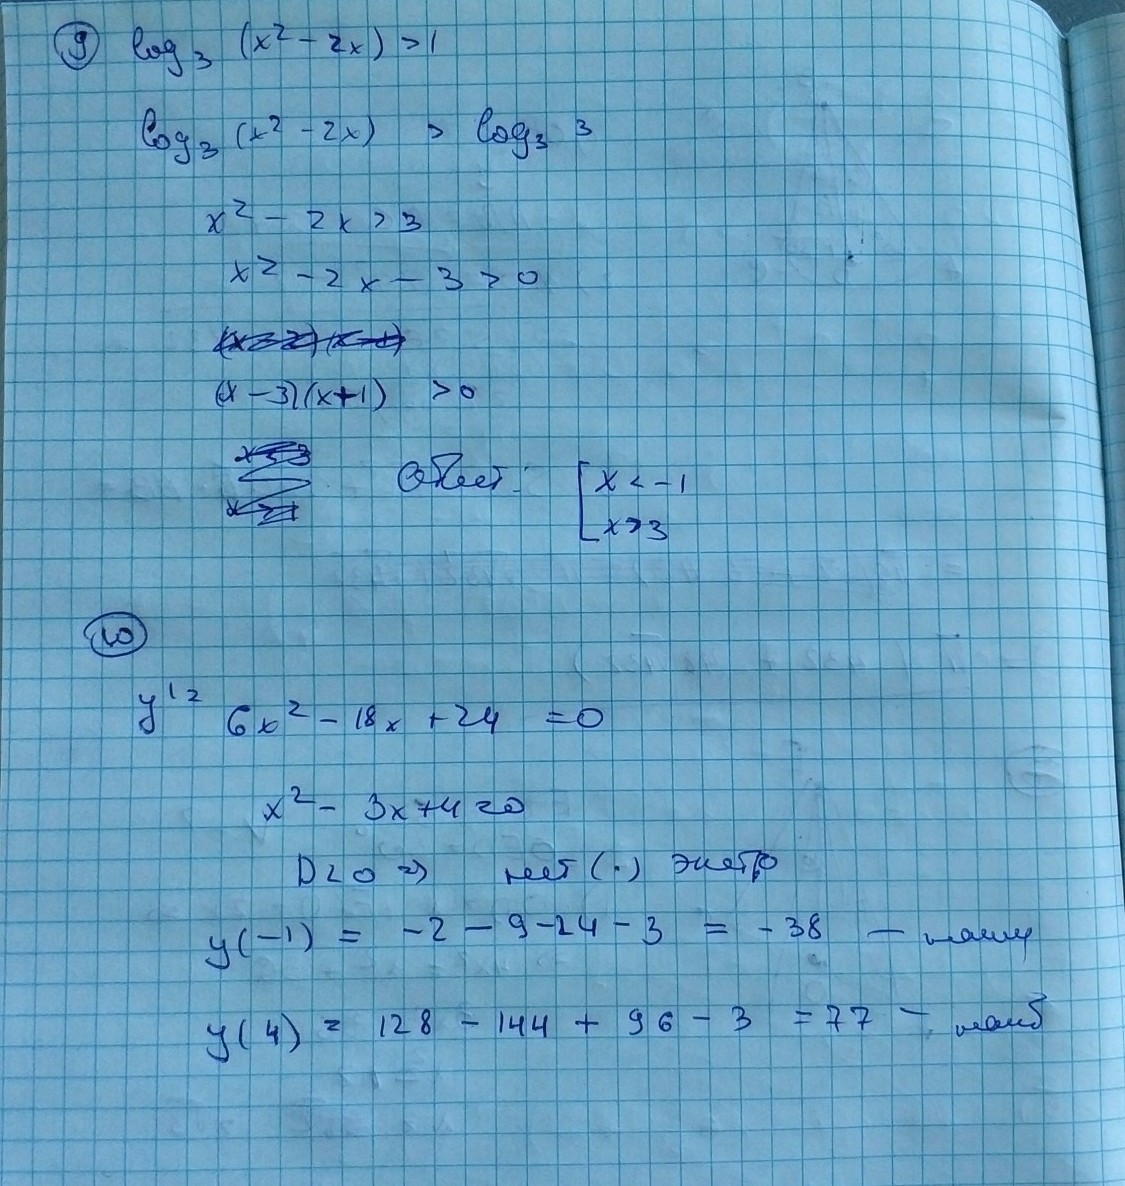 9 log₃ (x² - 2x) > 1
log₃ (x² - 2x) > log₃ 3
x² - 2x > 3
x² - 2x - 3 > 0
(x - 3)(x + 1) > 0
Ответ: [ x < -1
x > 3
10
y' = 6x² - 18x + 24 = 0
x² - 3x + 4 = 0
D < 0 ⇒ нет (·) экстр
y(-1) = -2 - 9 - 24 - 3 = -38 — наим
y(4) = 128 - 144 + 96 - 3 = 77 — наиб